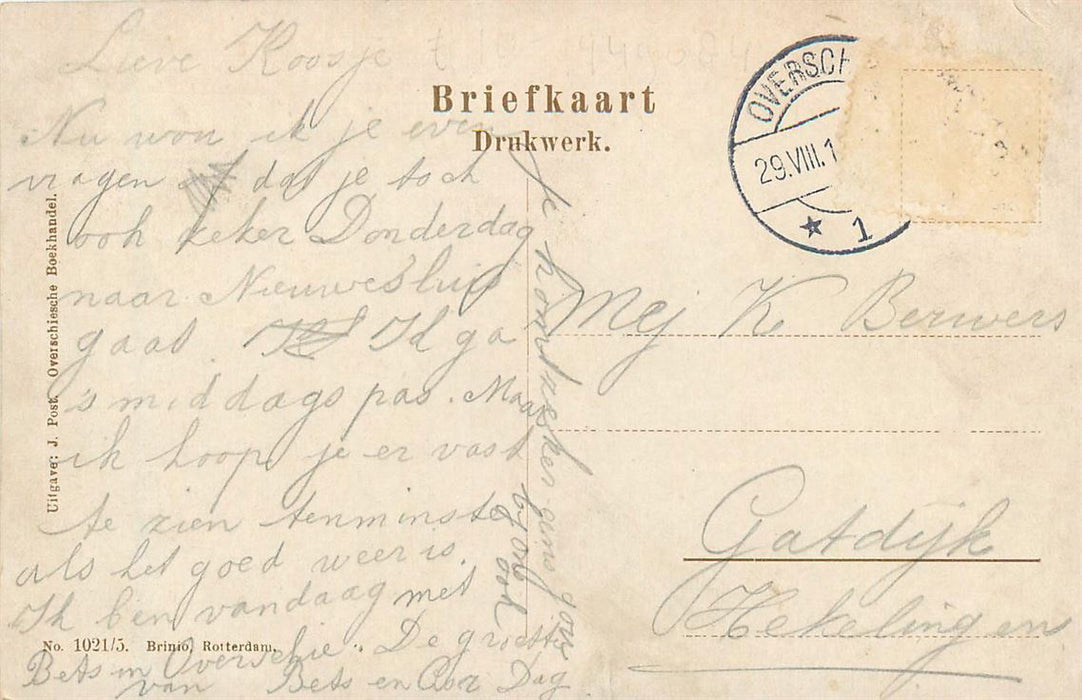 Lieve Koosje
Nu wou ik je even
vragen of dat je toch
ook zeker Donderdag
naar Nieuwesluis
gaat. Ik ga
's middags pas. Maar
ik hoop je er vast
te zien tenminste
als het goed weer is.
Ik ben vandaag met
Bets in Overschie. De groeten
van Bets en Dag
Je komt zeker eens gauw
by ons ook
Briefkaart
Drukwerk.
Uitgave: J. Post, Overschiesche Boekhandel.
No. 1021/5. Brinio, Rotterdam.
OVERSCH
29.VIII.1
1
Mej K Berwers
Gatdijk
Hekelingen